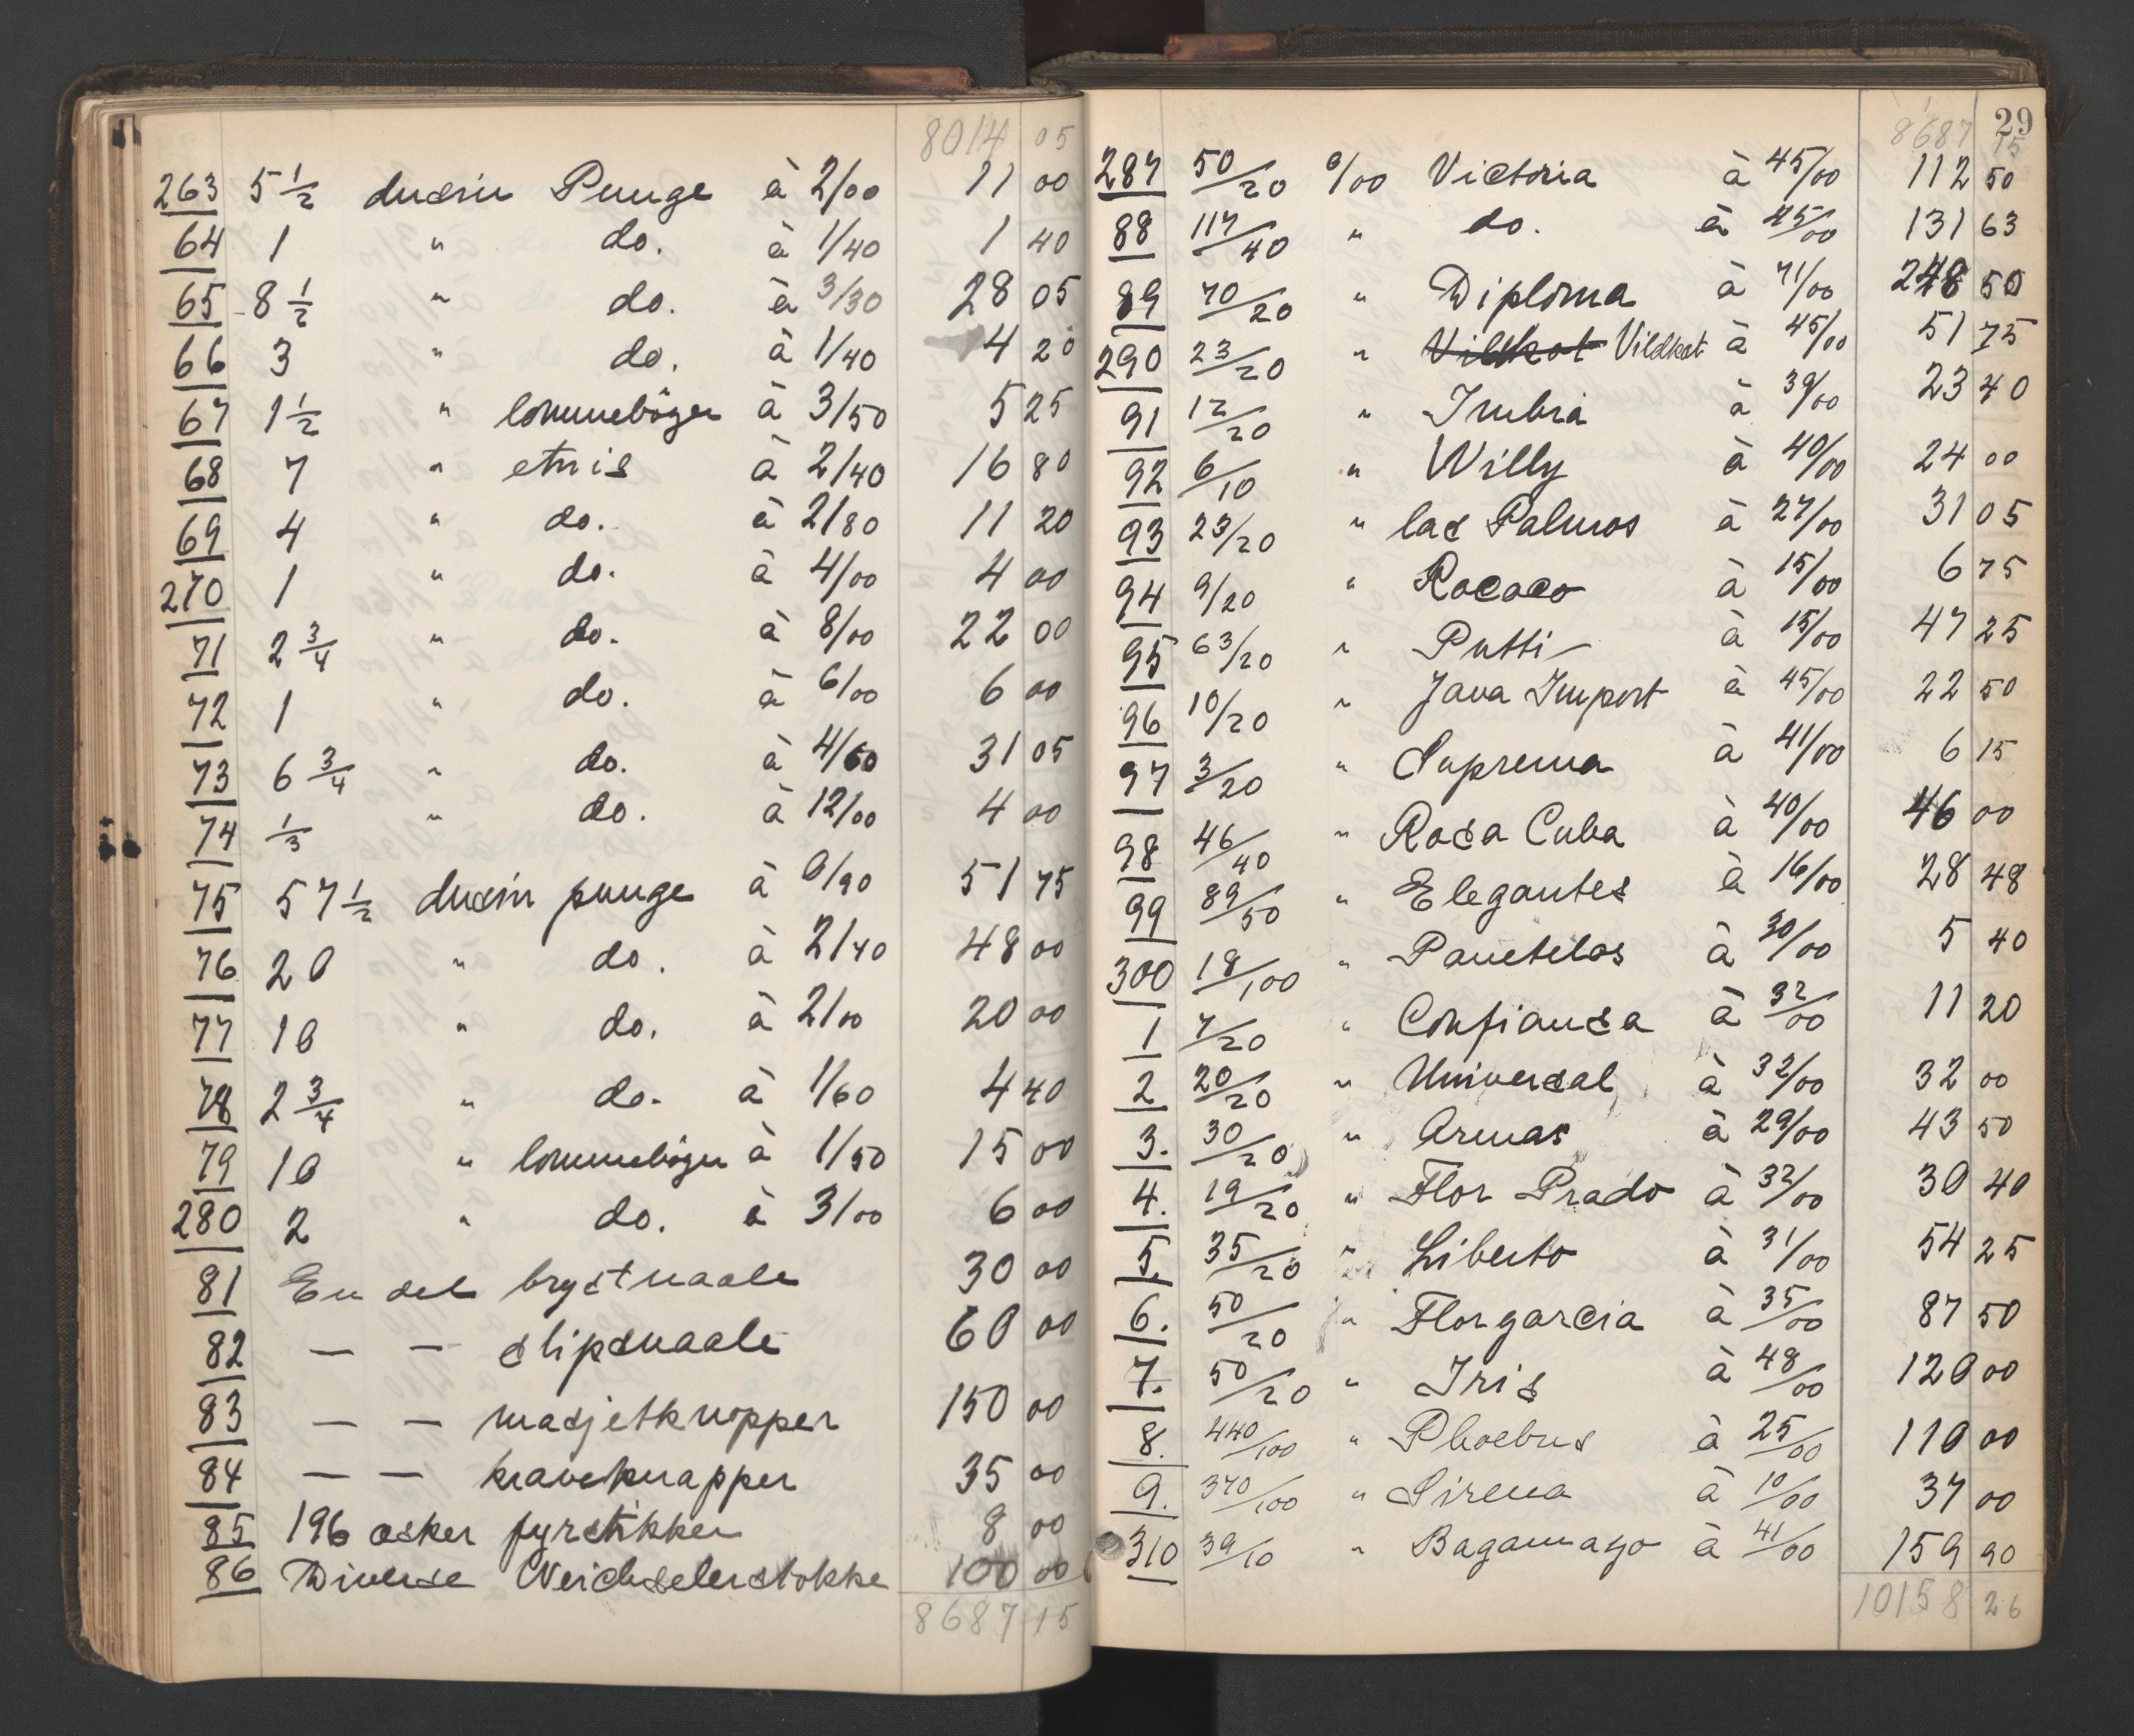 8014 05
263 5 1/2 dusin Punge à 2/00 11 00
64 1 " do. à 1/40 1 40
65 8 1/2 " do. à 3/30 28 05
66 3 " do. à 1/40 4 20
67 1 1/2 " lommebøger à 3/50 5 25
68 7 " etuis à 2/40 16 80
69 4 " do. à 2/80 11 20
270 1 " do. à 4/00 4 00
71 2 3/4 " do. à 8/00 22 00
72 1 " do. à 6/00 6 00
73 6 3/4 " do. à 4/60 31 05
74 1/3 " do. à 12/00 4 00
75 57 1/2 dusin punge à 0/90 51 75
76 20 " do. à 2/40 48 00
77 10 " do. à 2/00 20 00
78 2 3/4 " do. à 1/60 4 40
79 10 " lommebøger à 1/50 15 00
280 2 " do. à 3/00 6 00
81 En del brystnaale 30 00
82 — — slipsnaale 60 00
83 — — masjetknapper 150 00
84 — — kraveknapper 35 00
85 196 æsker fyrstikker 8 00
86 Diverse Weichselerstokke 100 00
8687 15
29
8687 15
287 50/20 o/oo Victoria à 45/00 112 50
88 117/40 " do. à 45/00 131 63
89 70/20 " Diploma à 71/00 248 50
290 23/20 " Vildkat Vildkat à 45/00 51 75
91 12/20 " Imbria à 39/00 23 40
92 6/10 " Willy à 40/00 24 00
93 23/20 " las Palmos à 27/00 31 05
94 9/20 " Rococo à 15/00 6 75
95 63/20 " Putti à 15/00 47 25
96 10/20 " Java Import à 45/00 22 50
97 3/20 " Suprema à 41/00 6 15
98 46/40 " Rosa Cuba à 40/00 46 00
99 89/50 " Elegantes à 16/00 28 48
300 18/100 " Panetelas à 30/00 5 40
1 7/20 " Confiansa à 32/00 11 20
2 20/20 " Universal à 32/00 32 00
3. 30/20 " Armas à 29/00 43 50
4. 19/20 " Flor Prado à 32/00 30 40
5. 35/20 " Liberto à 31/00 54 25
6. 50/20 " Florgarcia à 35/00 87 50
7. 50/20 " Iris à 48/00 120 00
8. 440/100 " Phoebus à 25/00 110 00
9. 370/100 " Sirena à 10/00 37 00
310 39/10 " Bagamayo à 41/00 159 90
10158 26